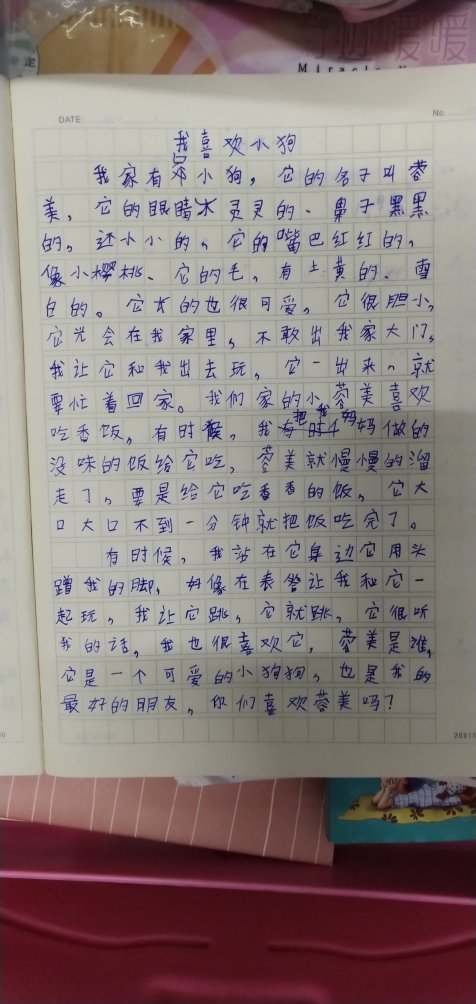 奇迹暖暖
Miracle
定
DATE / /
No
我喜欢小狗
我家有只小狗，它的名子叫蓉
美，它的眼睛水灵灵的、鼻子黑黑
的。还小小的，它的嘴巴红红的，
像小樱桃、它的毛，有土黄的、雪
白的。它有的也很可爱，它很胆小，
它光会在我家里，不敢出我家大门，
我让它和我出去玩，它一出来、就
要忙着回家。我们家的小蓉美喜欢
吃香饭，有时候，我把我妈妈做的
没味的饭给它吃，蓉美就慢慢的溜
走了，要是给它吃香香的饭，它大
口大口不到一分钟就把饭吃完了。
有时候，我站在它身边它用头
蹭我的脚，好像在表答让我和它一
起玩，我让它跳，它就跳，它很听
我的话，我也很喜欢它，蓉美是谁，
它是一个可爱的小狗狗，也是我的
最好的朋友，你们喜欢蓉美吗？